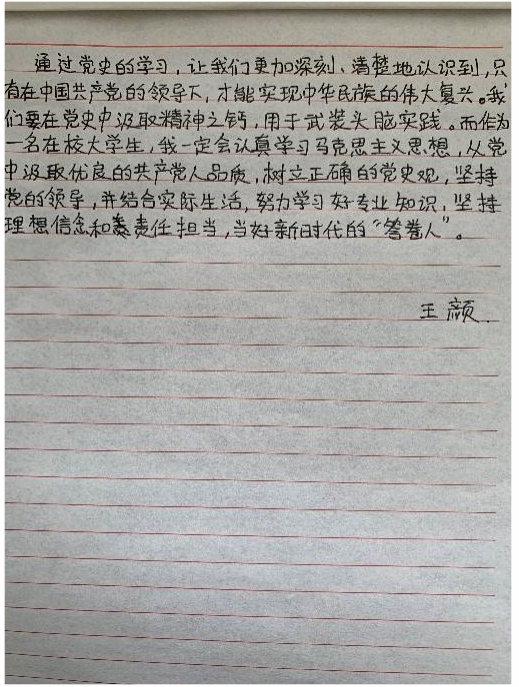 通过党史的学习,让我们更加深刻、清楚地认识到,只
有在中国共产党的领导下,才能实现中华民族的伟大复兴。我
们要在党史中汲取精神之钙,用于武装头脑实践。而作为
一名在校大学生,我一定会认真学习马克思主义思想,从党
中汲取优良的共产党人品质,树立正确的党史观,坚持
党的领导,并结合实际生活,努力学习好专业知识,坚持
理想信念和责任担当,当好新时代的“答卷人”。
王颜